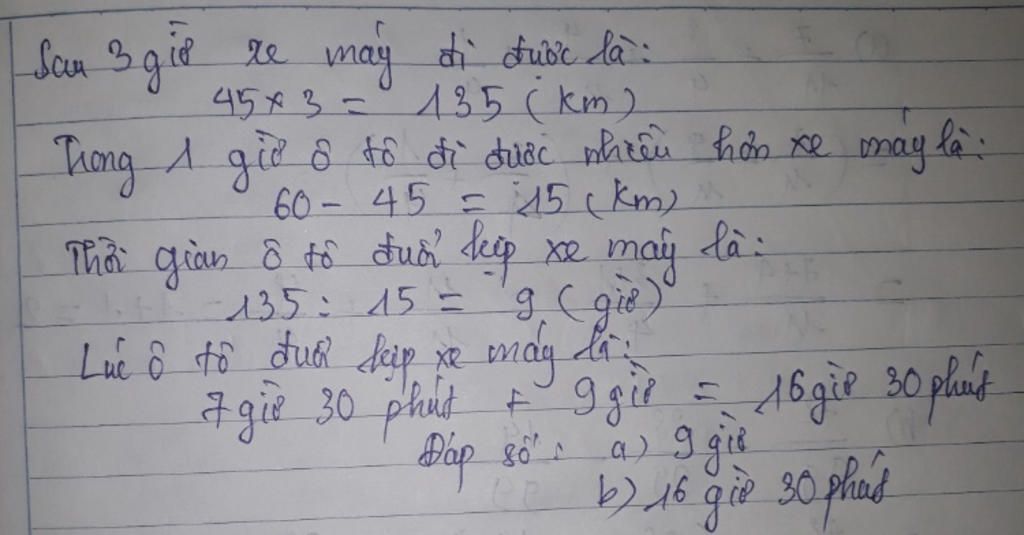 Sau 3 giờ xe máy đi được là:
45 × 3 = 135 (km)
Trong 1 giờ ô tô đi được nhiều hơn xe máy là:
60 - 45 = 15 (km)
Thời gian ô tô đuổi kịp xe máy là:
135 : 15 = 9 (giờ)
Lúc ô tô đuổi kịp xe máy là:
7 giờ 30 phút + 9 giờ = 16 giờ 30 phút
Đáp số: a) 9 giờ
b) 16 giờ 30 phút